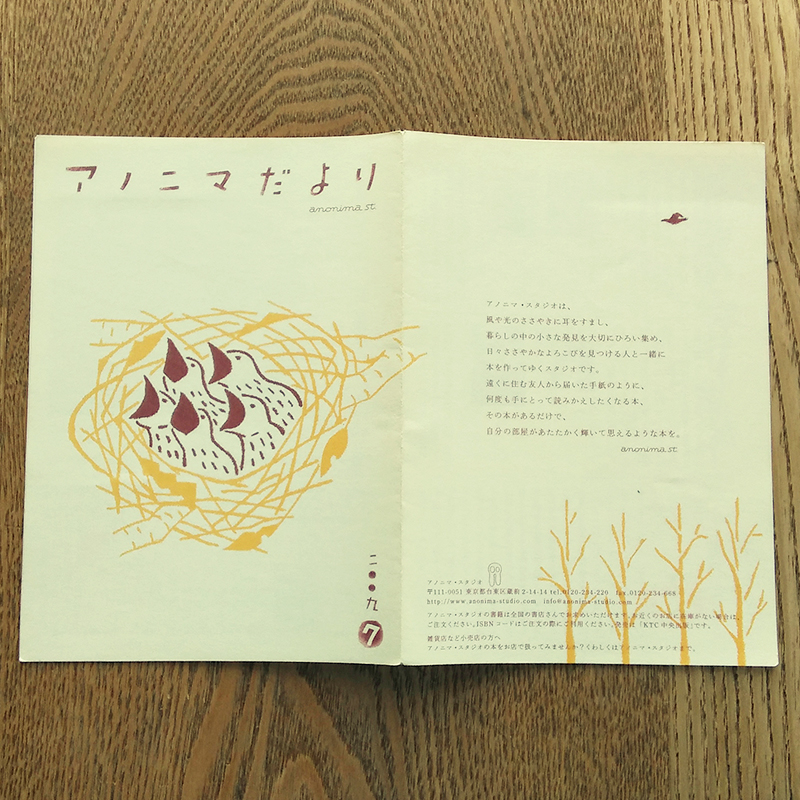 アノニマだより
anonima st.
二〇〇九
7
アノニマ・スタジオは、
風や光のささやきに耳をすまし、
暮らしの中の小さな発見を大切にひろい集め、
日々ささやかなよろこびを見つける人と一緒に
本を作ってゆくスタジオです。
遠くに住む友人から届いた手紙のように、
何度も手にとって読みかえしたくなる本、
その本があるだけで、
自分の部屋があたたかく輝いて思えるような本を。
anonima st.
アノニマ・スタジオ
〒111-0051 東京都台東区蔵前2-14-14 tel.0120-234-220 fax.0120-234-668
http://www.anonima-studio.com info@anonima-studio.com
アノニマ・スタジオの書籍は全国の書店さんでお求めいただけます。お近くのお店に在庫がない場合は、
ご注文ください。ISBNコードはご注文の際にご利用ください。発売は「KTC中央出版」です。
雑貨店など小売店の方へ
アノニマ・スタジオの本をお店で扱ってみませんか？くわしくはアノニマ・スタジオまで。